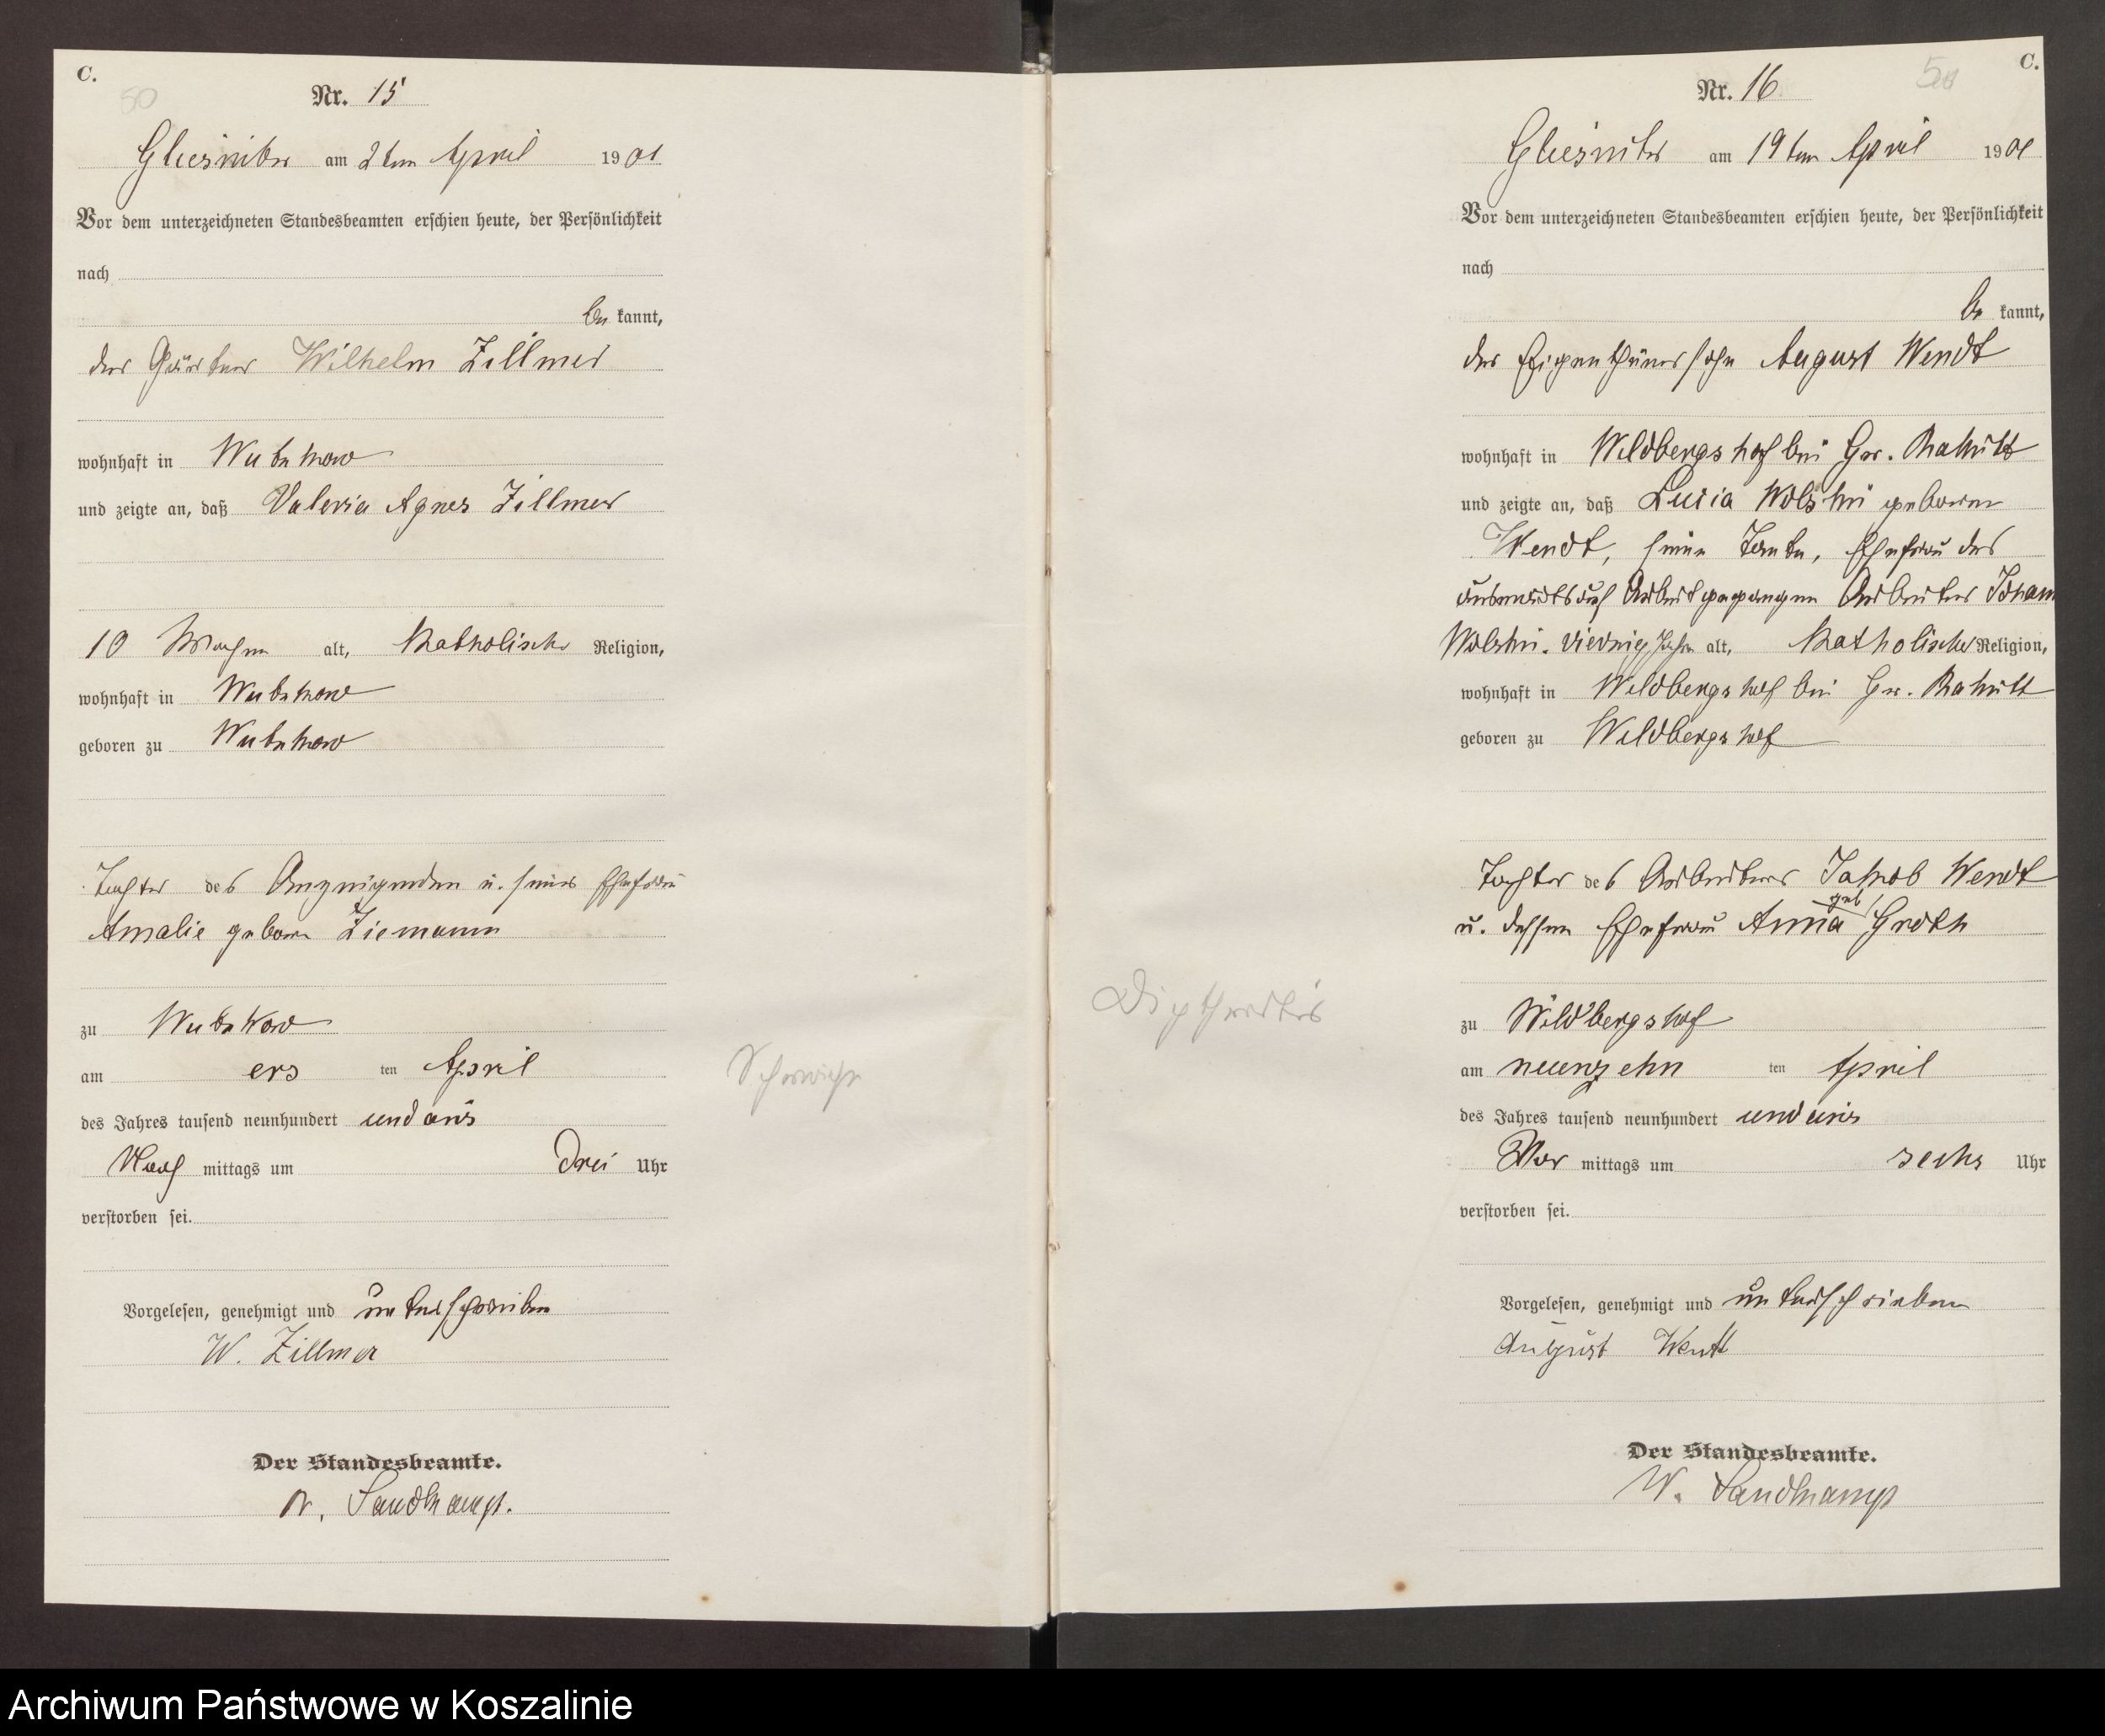 C.
50
Nr. 15
Gliesnitz am 2ten April 1901
Vor dem unterzeichneten Standesbeamten erschien heute, der Persönlichkeit
nach
be kannt,
der Gärtner Wilhelm Zillmer
wohnhaft in Wutzkow
und zeigte an, daß Valeria Agnes Zillmer
10 Wochen alt, Katholischer Religion,
wohnhaft in Wutzkow
geboren zu Wutzkow
Tochter des Anzeigenden u. seiner Ehefrau
Amalie geborne Ziemann
zu Wutzkow
am ers ten April
des Jahres tausend neunhundert und eins
Nach mittags um Drei Uhr
verstorben sei.
Vorgelesen, genehmigt und unterschrieben
W. Zillmer
Der Standesbeamte.
W. Sandkamp.
Schwäche
Diphtheritis
C.
Nr. 16
Gliesnitz am 19ten April 1901
Vor dem unterzeichneten Standesbeamten erschien heute, der Persönlichkeit
nach
be kannt,
der Eigenthümersohn August Wendt
wohnhaft in Wildbergshof bei Gr. Rakitt
und zeigte an, daß Luzia Wolski geborne
Wendt, seine Tante, Ehefrau des
auswärts auf Arbeit gegangen Arbeiters Johann
Wolski. vierzig Jahre alt, Katholischer Religion,
wohnhaft in Wildbergshof bei Gr. Rakitt
geboren zu Wildbergshof
Tochter des Arbeiters Jakob Wendt
u. dessen Ehefrau Anna geb. Groth
zu Wildbergshof
am neunzehn ten April
des Jahres tausend neunhundert und eins
Vor mittags um sechs Uhr
verstorben sei.
Vorgelesen, genehmigt und unterschrieben
August Wendt
Der Standesbeamte.
W. Sandkamp
Archiwum Państwowe w Koszalinie